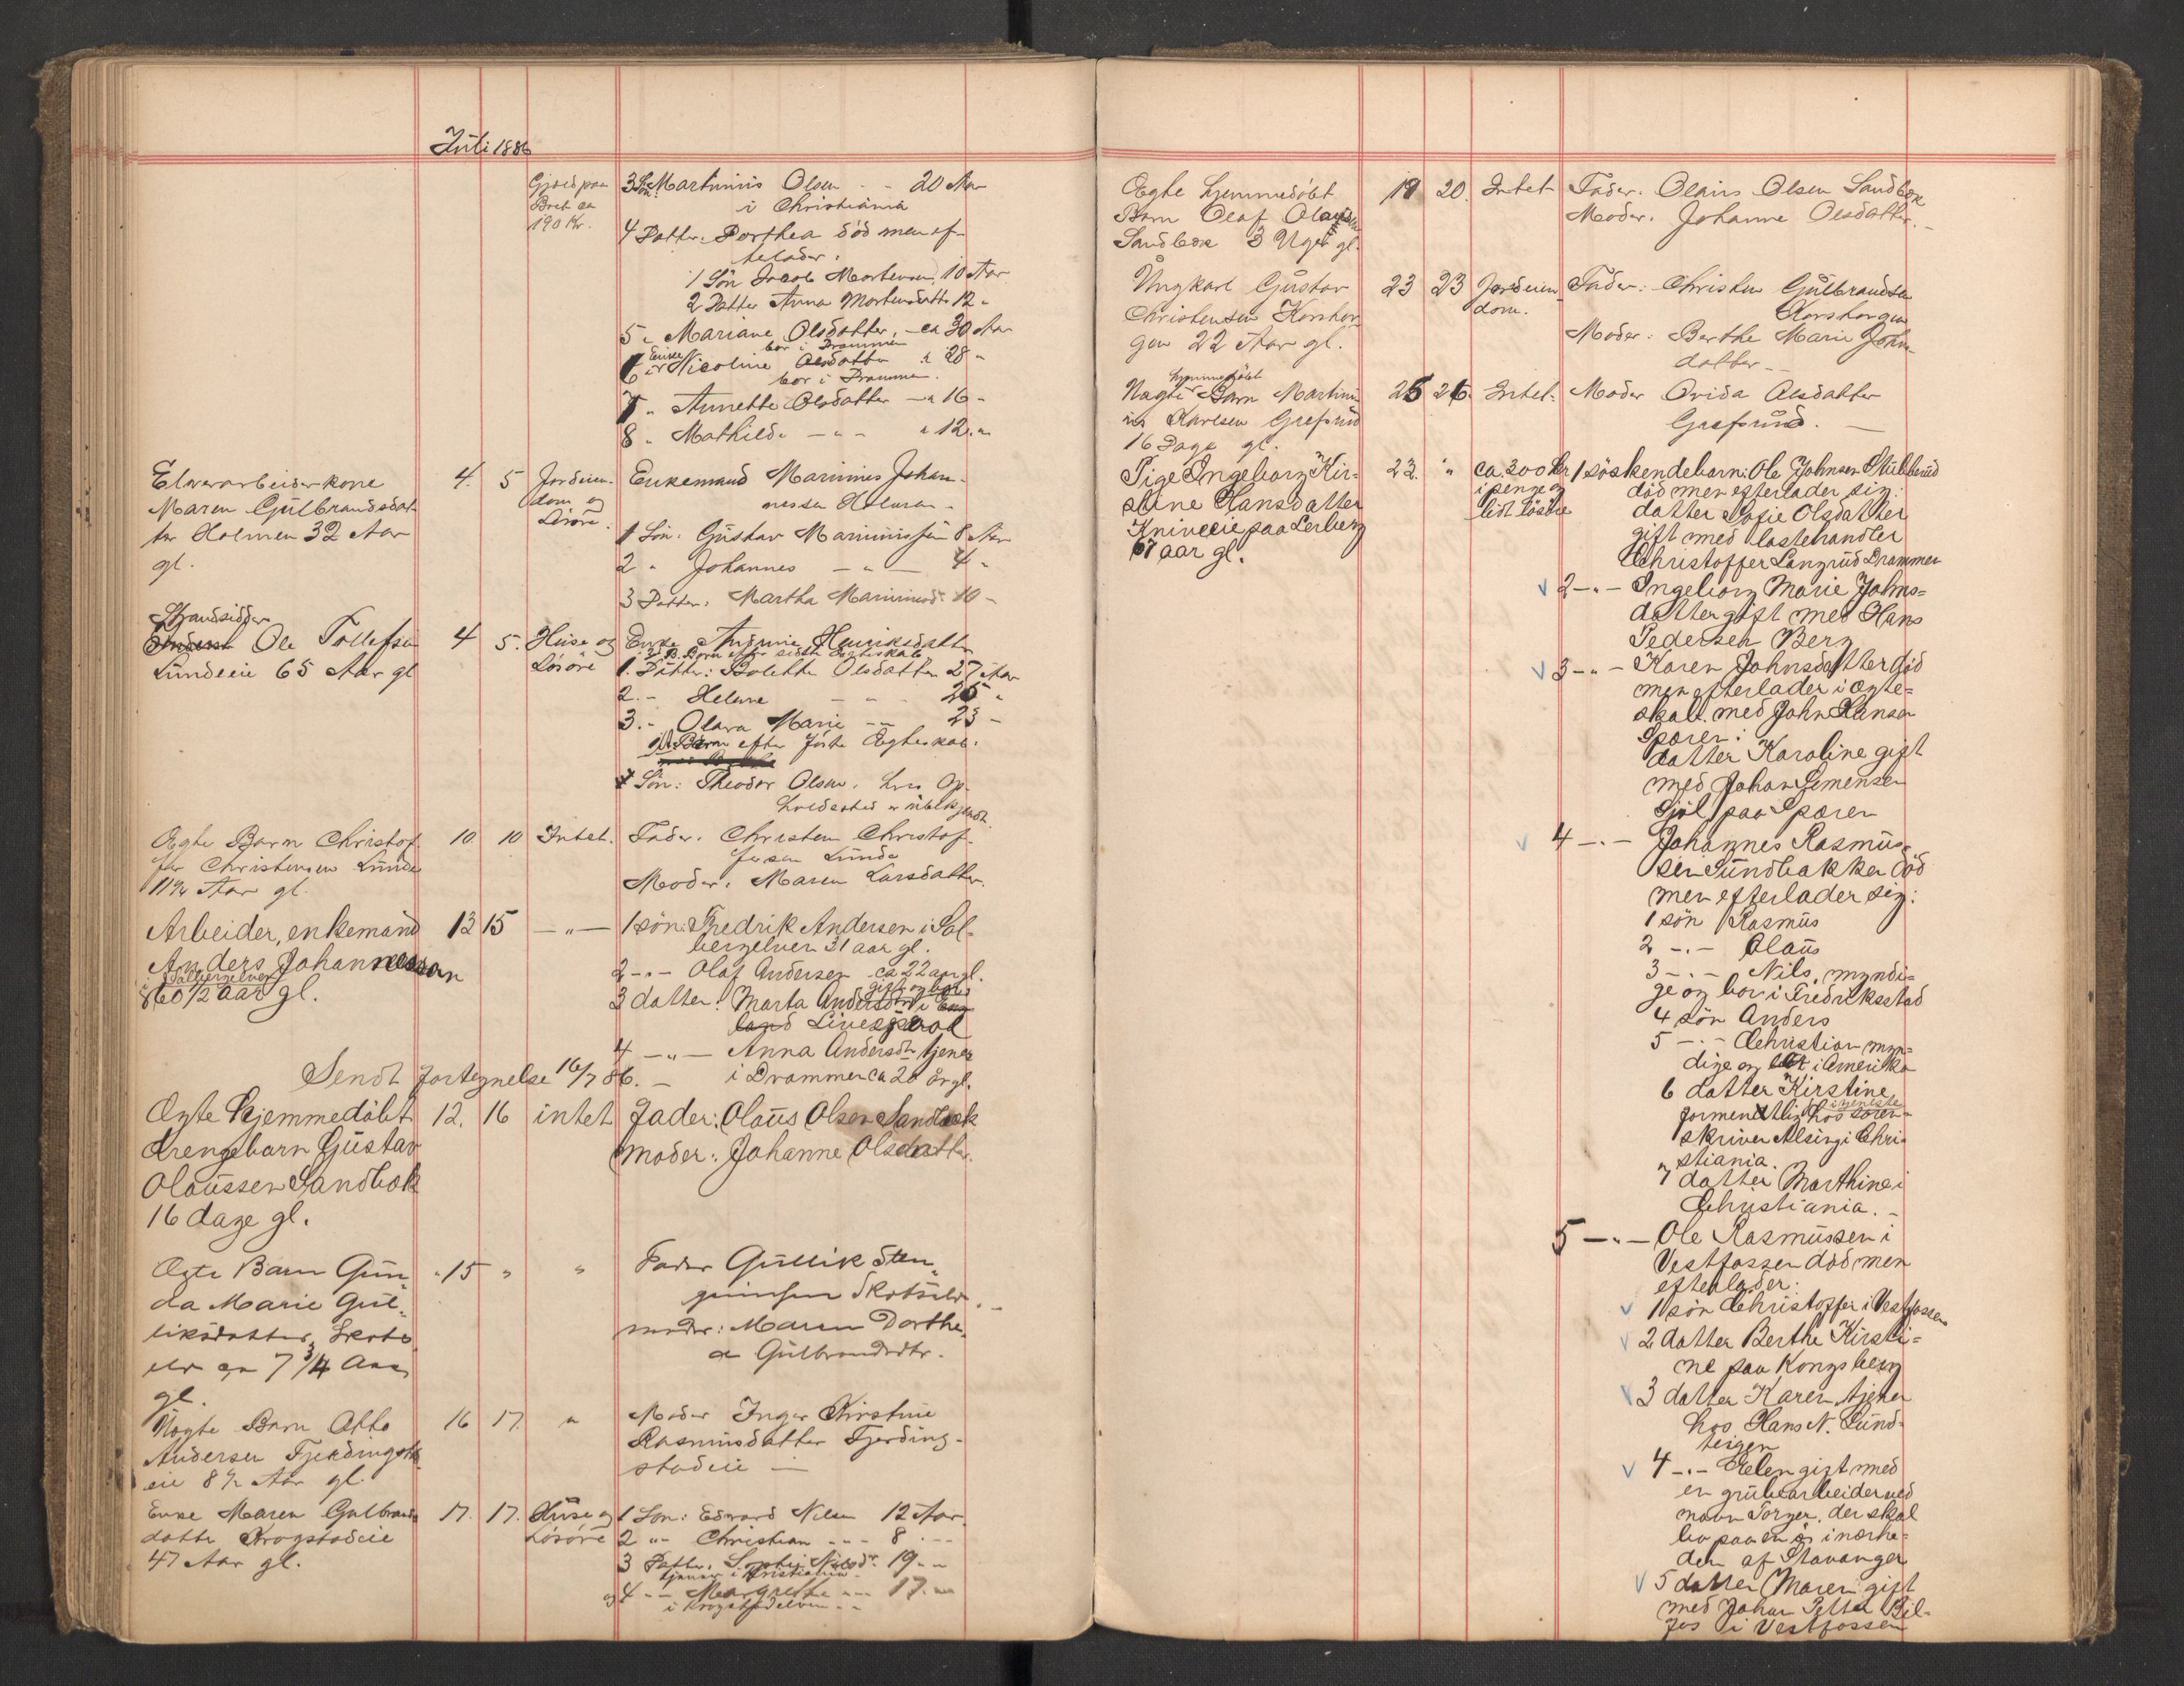 Juli 1886
Gjæld paa
Bret ca
190 Kr.
3 Sön Martinius Olsen - - 20 Aar
i Christiania
4 Datter Dorthea död men ef-
telader:
1 Sön Jacob Mortensen 10 Aar
2 Datter Anna Mortensdatter 12 "
5 " Mariane Olsdatter, - ca 30 Aar
bor i Drammen
6 " Enke Nicoline Olsdatter " 28 "
bor i Drammen.
7 " Annette Olsdatter - " 16 -
8 " Mathilde - " - " 12. "
Elvearbeiderkone
Maren Gulbrandsdat-
ter Holmen 32 Aar
gl.
4. 5
Jordeien-
dom og
Lösöre.
Enkemand Marinius Johan-
nessen Holmen -
1 Sön: Gustav Mariniussen 8 Aar
2 " Johannes - " - 4 "
3 Datter: Martha Mariniusd. 10 -
Strandsidder
Inderst Ole Tollefsen
Lundeeie 65 Aar gl
4 5.
Huse og
Lösöre
Enke Andrine Henriksdatter
3 B. Börn efter sidste Egteskab
1. Datter: Bolette Olsdatter 27 Aar
2. - Helene - - 25 "
3. - Olava Marie - - 23 -
1 Barn efter förste Egteskab:
4 Sön: Theodor Olsen, hvis Op-
holdssted er ubekjendt.
Ægte Barn Christof-
fer Christensen Lunde
11 1/2 Aar gl.
10. 10 Intet.
Fader: Christen Christof-
fersen Lunde
Moder: Maren Larsdatter.
Arbeider, enkemand
Anders Johannessen
i Solbergelven
60 1/2 aar gl.
13 15 - " -
1 sön: Fredrik Andersen i Sol-
bergelven 31 aar gl.
2 - " - Olaf Andersen ca 22 aar gl.
3 datter: Marta Andersdtr gift og bor i Eng
land Liverpool
4 - " - Anna Andersdtr tjener
i Drammen ca 20 år gl.
Sendt Fortegnelse 16/7 86. -
Ægte hjemmedöbt
drengebarn Gustav
Olaussen Sandbæk
16 dage gl.
12. 16 intet
Fader: Olaus Olsen Sandbæk
moder: Johanne Olsdatter.
Ægte Barn Gun-
da Marie Gul-
liksdatter, Skots-
elv ca 7 3/4 Aar
gl.
" 15 " "
Fader Gullik Sten-
grimsen Skotselv. -
moder: Maren Dorthe-
a Gulbrandsdtr.
Uægte Barn Otto
Andersen Fjerdingstad-
eie 8 1/2 Aar gl
16 17. "
Moder Inger Kirstine
Rasmusdatter Fjerding-
stadeie -
Enke Maren Gulbrands-
datter Krogstadeie
47 Aar gl.
17. 17.
Huse og
Lösöre
1 Sön: Edvard Nilsen 12 Aar
2 " - Christian - - - 8 . - -
3 Datter: Sophie Nilsdr. 19 - "
tjener i Kristiania -
og 4 - - Margrethe - - 17. - "
i Krogstadelven - -
Ægte hjemmedöbt
Barn Olaf Olaussen
Sandbæk 3 Uger gl.
19 20. Intet
Fader: Olaus Olsen Sandbæk
Moder: Johanne Olsdatter. -
Ungkarl Gustav
Christensen Korshau-
gen 22 Aar gl.
23 23
Jordeien-
dom.
Fader: Christen Gulbrandsen
Korshaugen
Moder: Berthe Marie John-
datter - -
hjemmedöbt
Uægte Barn Martini-
us Karlsen Grefsrud
16 Dage gl.
25 26. Intet.
Moder Ovida Olsdatter
Grefsrud. -
Pige Ingeborg Kir-
stine Hansdatter
Knive eie paa Lerberg
67 aar gl.
22. "
ca. 300 kr
i penge og
lidt lösöre
1 söskendebarn: Ole Johnsen Stubberud
död men efterlader sig:
datter Sofie Olsdatter
gift med lastehandler
Christoffer Langrud Drammen
2 - " - Ingeborg Marie Johns-
datter gift med Hans
Pedersen Berg
3 - " - Karen Johnsdatter död
men efterlader i ægte-
skab med John Hansen
Sparen:
datter Karoline gift
med Johan Simensen
Gjöl paa Sparen
4 - " - Johannes Rasmus-
sen Sundbakken död
men efterlader sig:
1 sön Rasmus
2 - " - Olaus
3 - " - Nils, myndi-
ge og bor i Fredriksstad
4 sön Anders
5 - " - Christian myn-
dige og bor i Amerika
6 datter Kirstine
formentlig i tjeneste hos soren-
skriver Alsing i Chri-
stiania.
7 datter Marthine i
Christiania. -
5 - " - Ole Rasmussen i
Vestfossen död men
efterlader:
1 sön Christoffer i Vestfossen
2 datter Berthe Kirsti-
ne paa Kongsberg
3 datter Karen, tjener
hos Hans N. Sund-
teigen
4 - " - Elen gift med
en grubearbeider ved
navn Torger, der skal
bo paa en ö i nærhe-
den af Stavanger
5 datter Maren gift
med Johan Petter Bil-
fos i Vestfossen